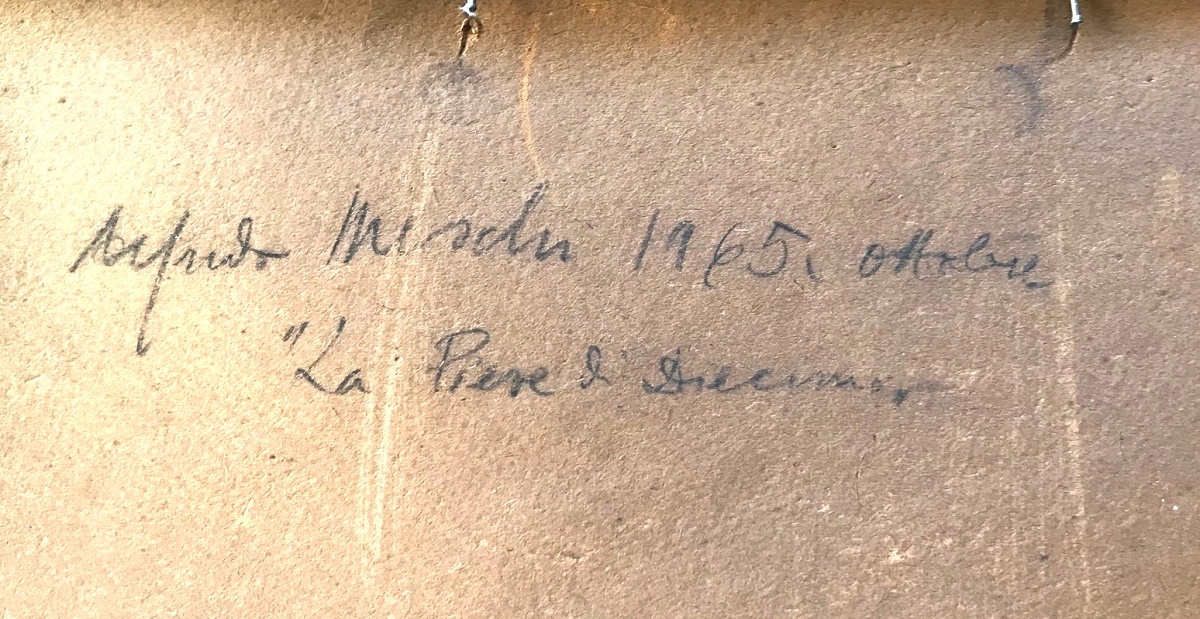 Alfredo Meschi 1965. Ottobre
"La Pieve di Diecimo"